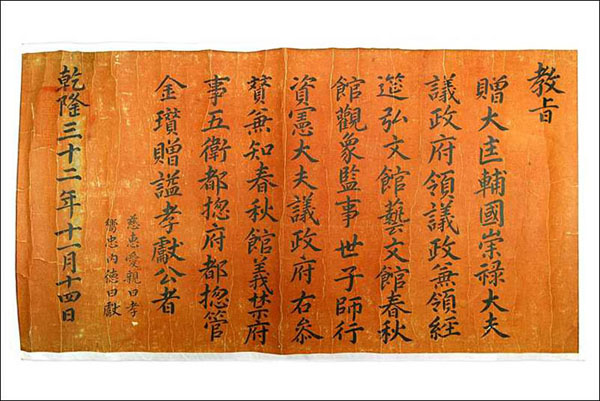 教旨
贈大匡輔國崇祿大夫
議政府領議政兼領經
筵弘文館藝文館春秋
館觀象監事世子師行
資憲大夫議政府右叅
贊兼知春秋館義禁府
事五衛都揔府都揔管
金瓚贈諡孝獻公者
慈惠愛親曰孝
嚮忠內德曰獻
乾隆三十二年十一月十四日